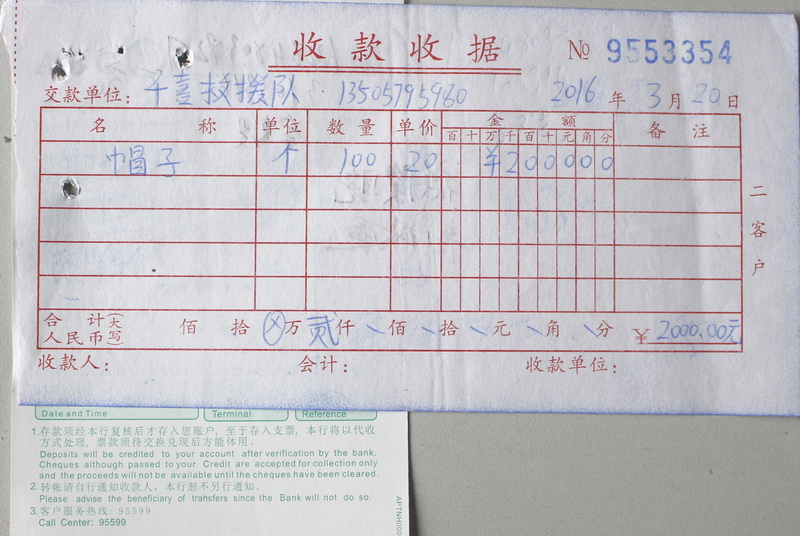 收款收据 № 9553354
交款单位：千喜救援队 13505795960 2016年3月20日
名称 单位 数量 单价 金额 备注
百十万千百十元角分
帽子 个 100 20 ¥200000
二客户
合计人民币(大写) 佰 拾 ⊗万 贰仟 \佰 \拾 \元 \角 \分 ¥2000.00元
收款人： 会计： 收款单位：
Date and Time Terminal Reference
1.存款须经本行复核后才存入您账户，至于存入支票，本行将以代收
方式处理，票款须待交换兑现后方能体用。
Deposits will be credited to your account after verification by the bank.
Cheques although passed to your Credit are accepted for collection only
and the proceeds will not be available until the cheques have been cleared.
2.转帐请自行通知收款人，本行恕不另行通知。
Please advise the beneficiary of transfers since the Bank will not do so.
3.客户服务热线: 95599
Call Center: 95599
APTNH000